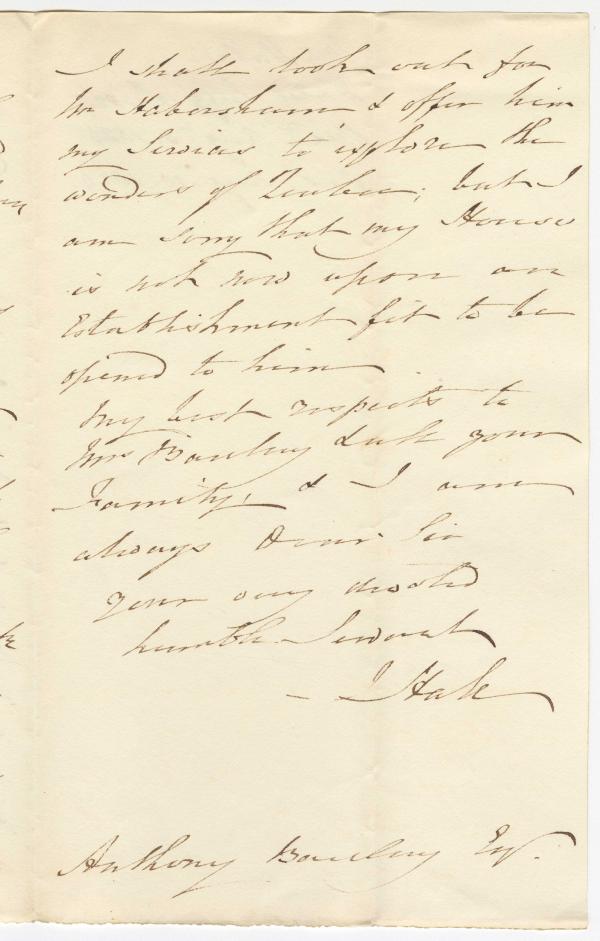 I shall look out for
Mr Habersham & offer him
my Services to explore the
wonders of Quebec; but I
am sorry that my House
is not now upon an
Establishment fit to be
opened to him
My best respects to
Mrs Barclay & all your
Family, & I am
always Dear Sir
your very devoted
humble Servant
J Hale
Anthony Barclay Esq.